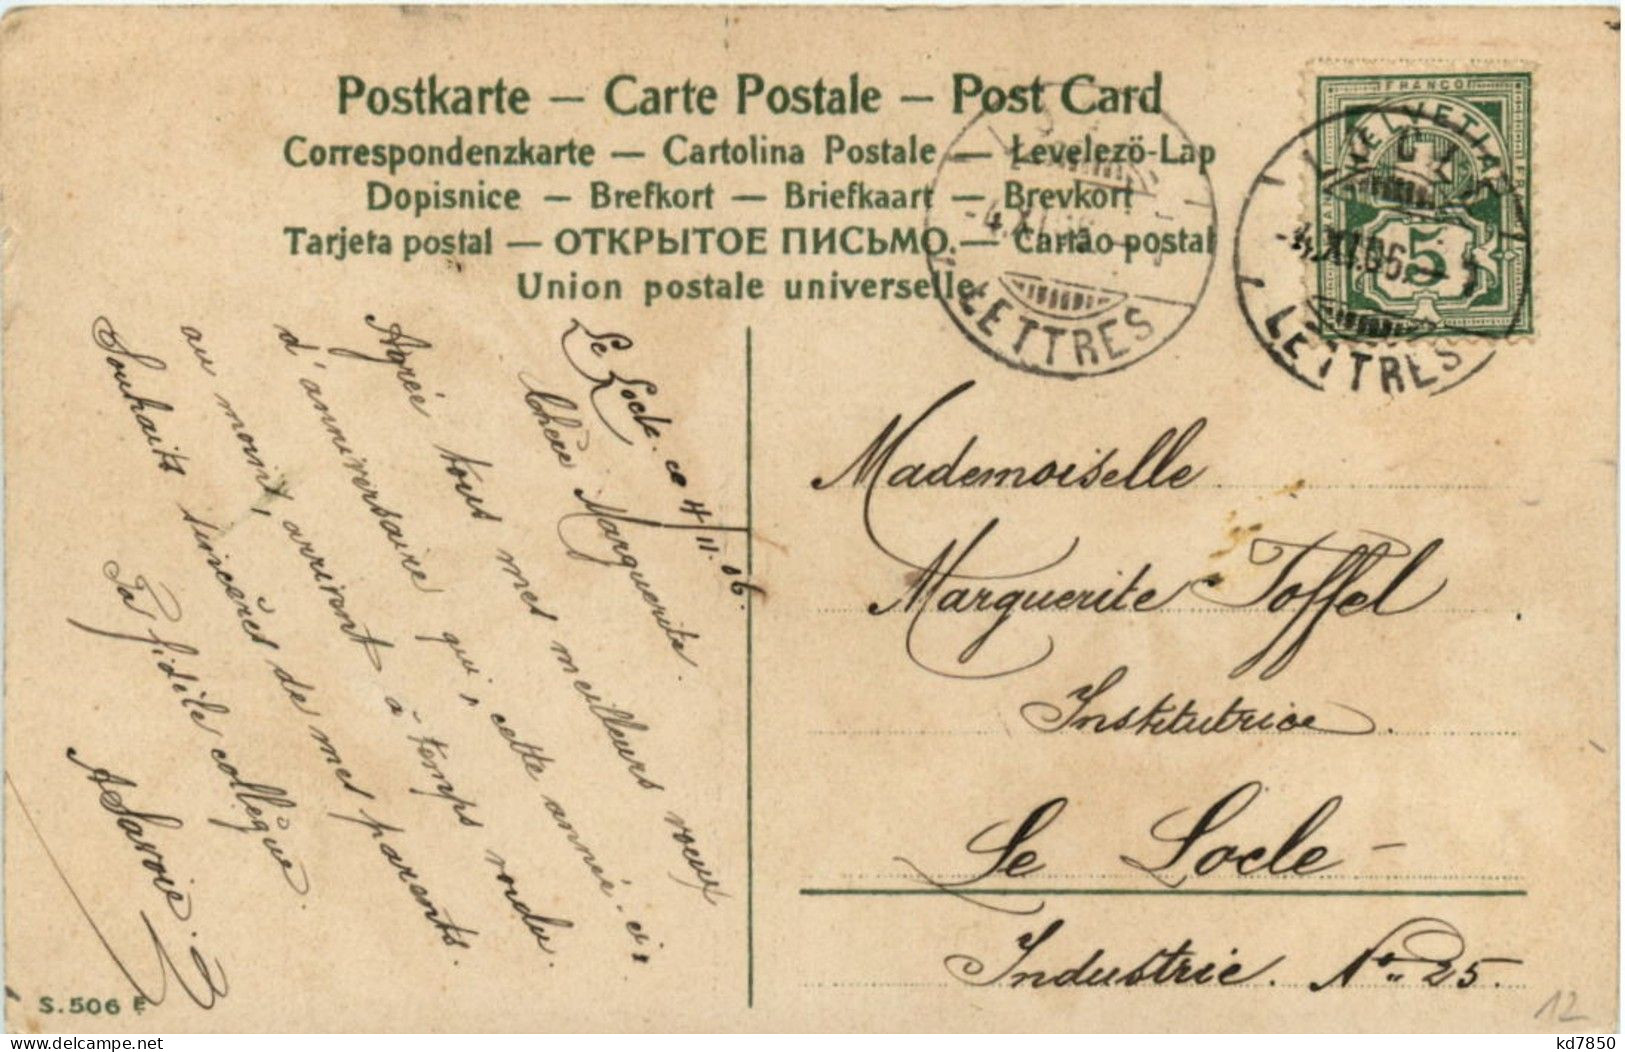 Postkarte – Carte Postale – Post Card
Correspondenzkarte — Cartolina Postale — Levelezö-Lap
Dopisnice — Brefkort — Briefkaart — Brevkort
Tarjeta postal — ОТКРЫТОЕ ПИСЬМО — Cartão postal
Union postale universelle.
FRANCO
HELVETIA
5
-4.XI.06.
LETTRES
-4.XI.
LETTRES
Le Locle. ce 4/11.06.
Chère Marguerite.
Agrée tous mes meilleurs vœux
d'anniversaire qui, cette année-ci,
au moins, arriront à temps voulu.
Souhaits sincères de mes parents.
Ta fidèle collègue
A Savoie.
Mademoiselle
Marguerite Toffel
Institutrice.
Le Locle –
Industrie. No 25.
S. 506 E
12
kd7850